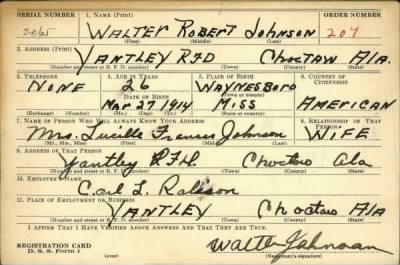 SERIAL NUMBER 1. NAME (Print) ORDER NUMBER
WALTER ROBERT JOHNSON 207
(First) (Middle) (Last)
2. ADDRESS (Print)
YANTLEY RFD CHOCTAW Ala.
(Number and street or R. F. D. number) (Town) (County) (State)
3. TELEPHONE 4. AGE IN YEARS 5. PLACE OF BIRTH 6. COUNTRY OF CITIZENSHIP
NONE 26 WAYNESBORO
DATE OF BIRTH
Mar 27 1914 MISS AMERICAN
7. NAME OF PERSON WHO WILL ALWAYS KNOW YOUR ADDRESS 8. RELATIONSHIP OF THAT PERSON
Mrs. Lucille Frances Johnson WIFE
(Mr., Mrs., Miss) (First) (Middle) (Last)
9. ADDRESS OF THAT PERSON
Yantley RFD. Choctaw Ala
(Number and street or R. F. D. number) (Town) (County) (State)
10. EMPLOYER'S NAME
Carl L.
11. PLACE OF EMPLOYMENT OR BUSINESS
YANTLEY Choctaw Ala
(Number and street or R. F. D. number) (Town) (County) (State)
I AFFIRM THAT I HAVE VERIFIED ABOVE ANSWERS AND THAT THEY ARE TRUE.
REGISTRATION CARD
D. S. S. Form 1
Walter Johnson
(Registrant's signature)